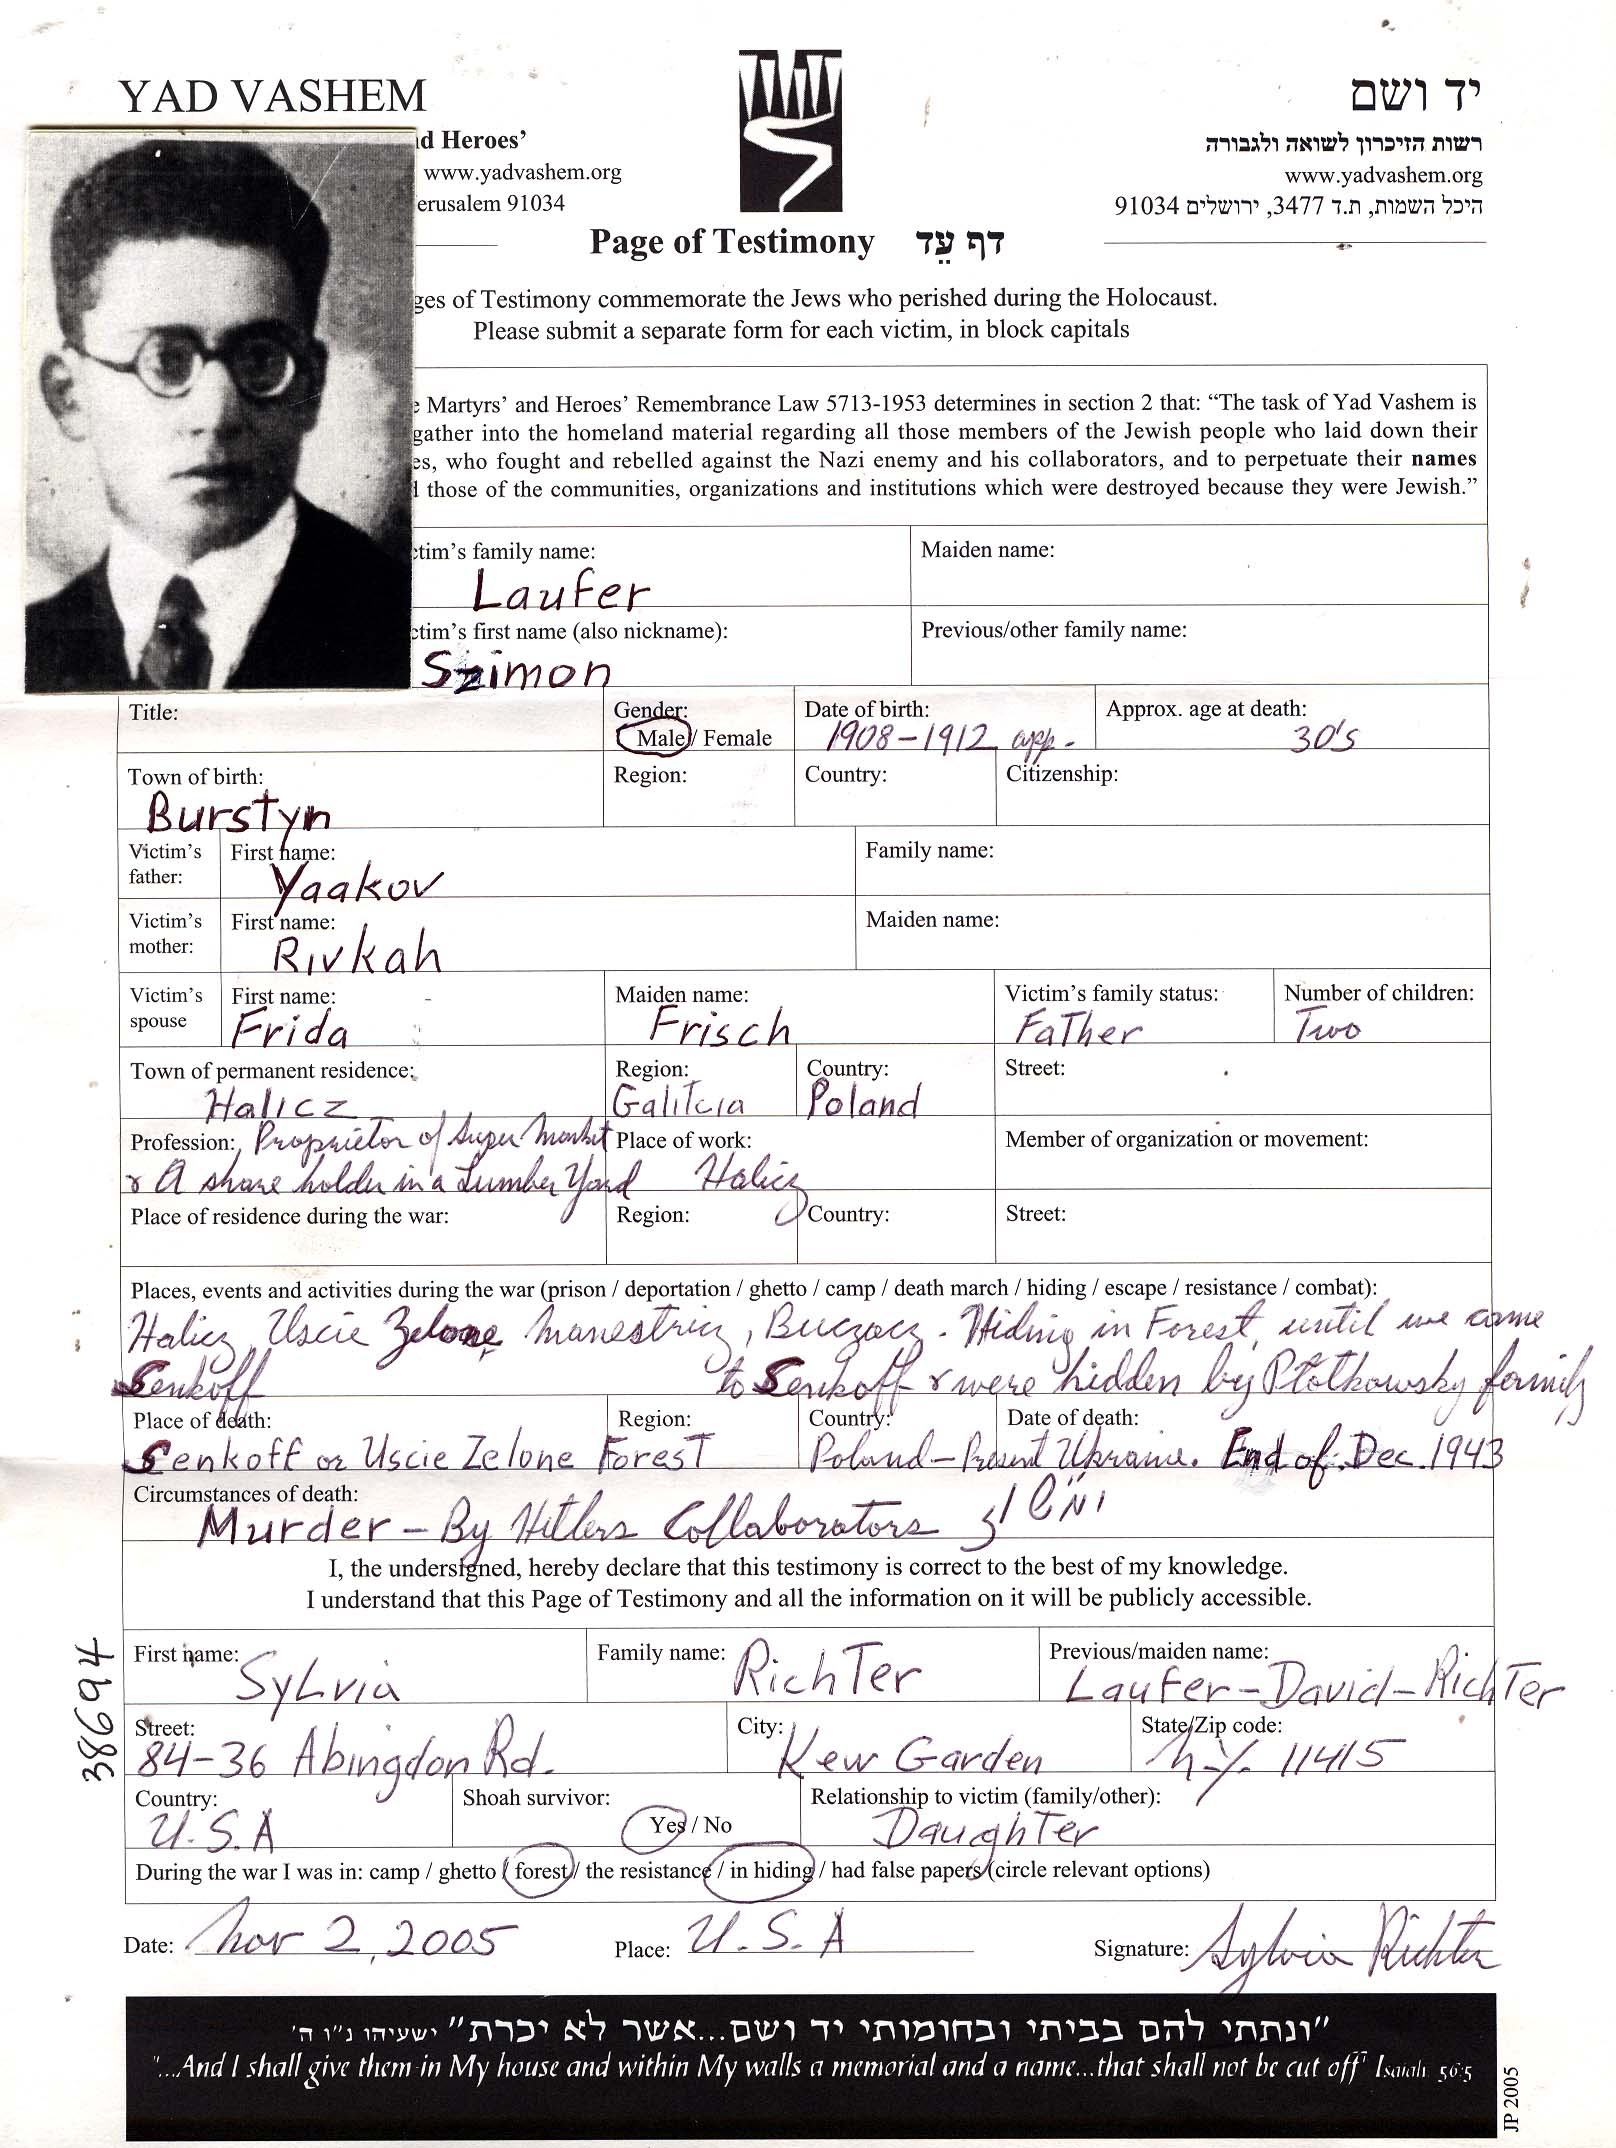 YAD VASHEM
יד ושם
d Heroes’
רשות הזיכרון לשואה ולגבורה
www.yadvashem.org
www.yadvashem.org
erusalem 91034
היכל השמות, ת.ד 3477, ירושלים 91034
Page of Testimony דף עֵד
ges of Testimony commemorate the Jews who perished during the Holocaust.
Please submit a separate form for each victim, in block capitals
e Martyrs’ and Heroes’ Remembrance Law 5713-1953 determines in section 2 that: “The task of Yad Vashem is
gather into the homeland material regarding all those members of the Jewish people who laid down their
es, who fought and rebelled against the Nazi enemy and his collaborators, and to perpetuate their names
those of the communities, organizations and institutions which were destroyed because they were Jewish.”
ctim’s family name: Maiden name:
Laufer
ctim’s first name (also nickname): Previous/other family name:
Szimon
Title: Gender: Date of birth: Approx. age at death:
Male / Female 1908-1912 app. 30's
Town of birth: Region: Country: Citizenship:
Burstyn
Victim’s father: First name: Family name:
Yaakov
Victim’s mother: First name: Maiden name:
Rivkah
Victim’s spouse First name: Maiden name: Victim’s family status: Number of children:
Frida Frisch Father Two
Town of permanent residence: Region: Country: Street:
Halicz Galitcia Poland
Profession: Proprietor of Super Market Place of work: Member of organization or movement:
& A share holder in a Lumber Yard Halicz
Place of residence during the war: Region: Country: Street:
Places, events and activities during the war (prison / deportation / ghetto / camp / death march / hiding / escape / resistance / combat):
Halicz, Uscie Zelone, Manestricz, Buczacz. Hiding in Forest, until we came
Senkoff to Senkoff & were hidden by Ptotkowsky family
Place of death: Region: Country: Date of death:
Senkoff or Uscie Zelone Forest Poland - Present Ukraine. End of Dec. 1943
Circumstances of death:
Murder - By Hitlers Collaborators
I, the undersigned, hereby declare that this testimony is correct to the best of my knowledge.
I understand that this Page of Testimony and all the information on it will be publicly accessible.
First name: Family name: Previous/maiden name:
Sylvia Richter Laufer-David-Richter
Street: City: State/Zip code:
84-36 Abingdon Rd. Kew Garden N.Y. 11415
Country: Shoah survivor: Relationship to victim (family/other):
U.S.A Yes / No Daughter
During the war I was in: camp / ghetto / forest / the resistance / in hiding / had false papers (circle relevant options)
38694
Date: Nov 2, 2005 Place: U.S.A Signature: Sylvia Richter
"ונתתי להם בביתי ובחומותי יד ושם...אשר לא יכרת" ישעיהו נ"ו ה'
"...And I shall give them in My house and within My walls a memorial and a name...that shall not be cut off" Isaiah 56:5
JP 2005